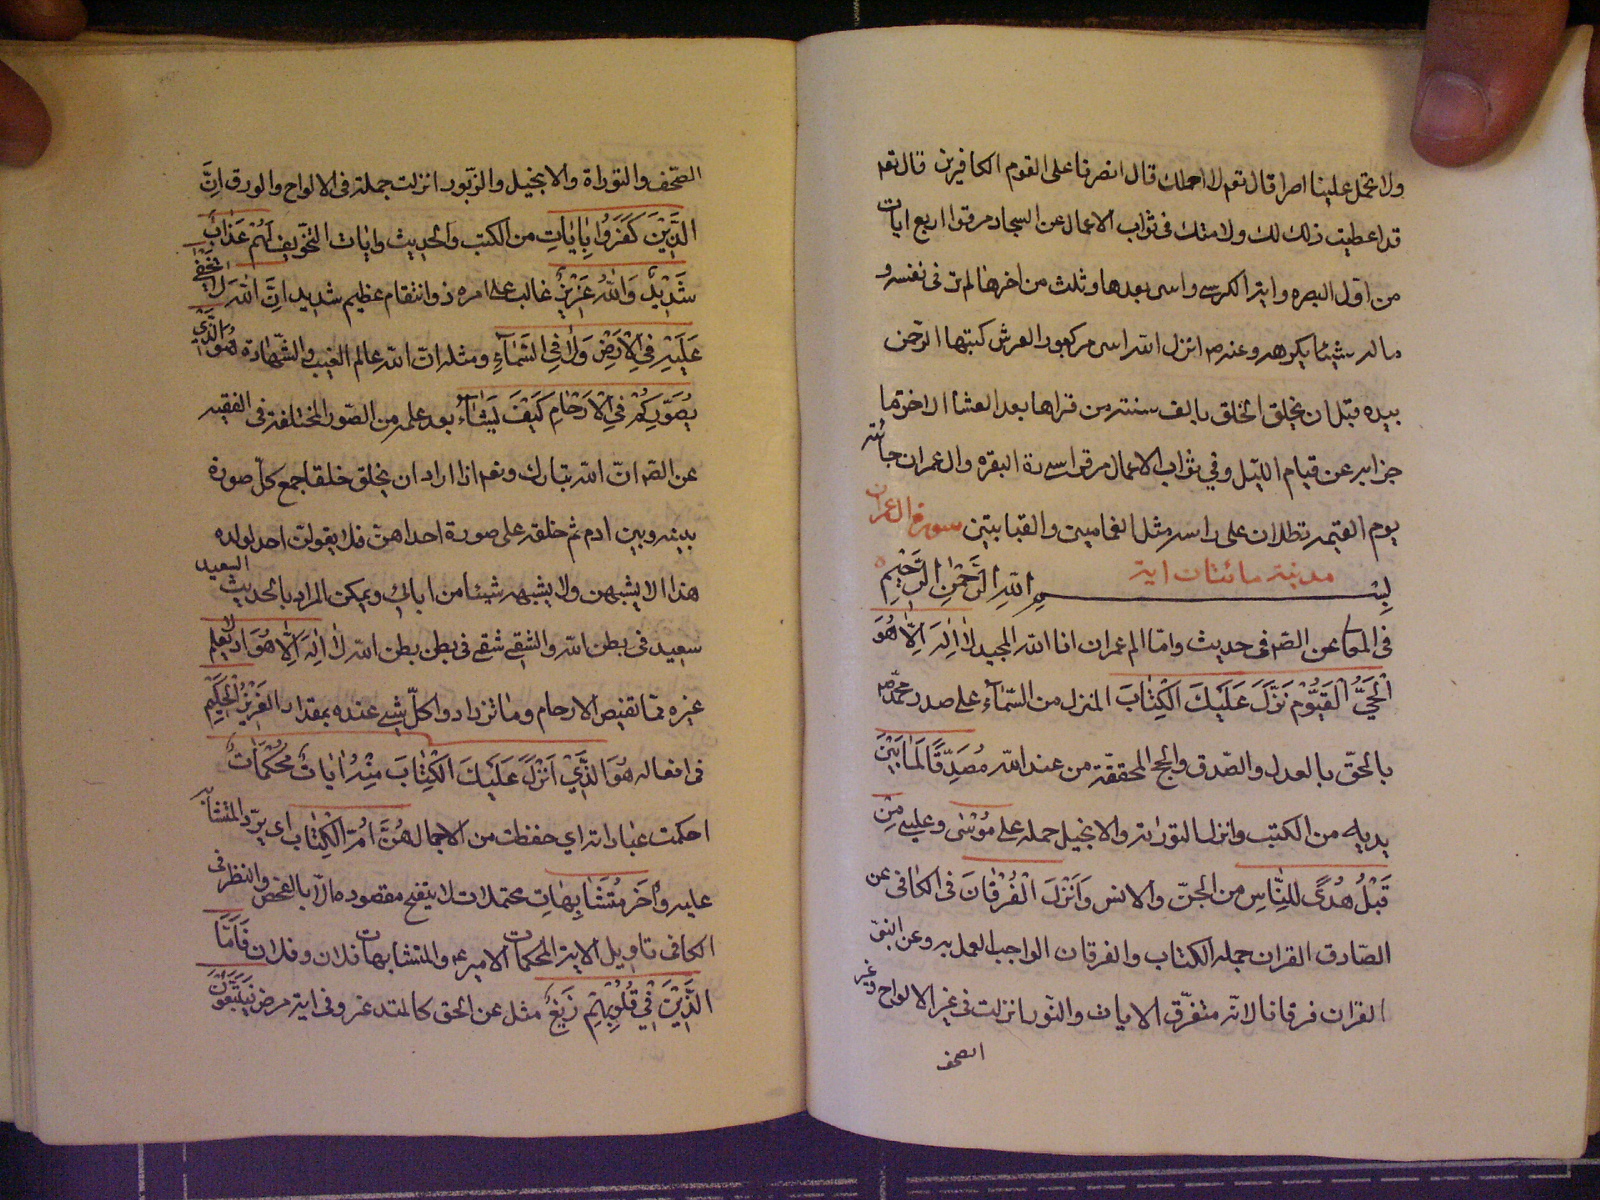 ولا تحمل علينا اصرا قال تعم لا احملك قال انصرنا على القوم الكافرين قال تعم
قد اعطيت ذلك لك ولامتك فى ثواب الاعمال عن السجاد من قرا اربع ايات
من اول البقره واية الكرسى وايتين بعدها وثلث من اخرها لم ير فى نفسه و
ماله شيئا يكرهه وعنه انزل الله العرش كتبها الرحمن
بيده قبل ان يخلق الخلق بالف سنة من قراها بعد العشاء الاخرة
اجزاه عن قيام الليل وفي ثواب الاعمال من قرا سورة البقره وال عمران جائتا
يوم القيمة تظلان على راسه مثل الغمامتين والغيابتين سورة ال عمران
مدنية مائتان اية
بسم الله الرحمن الرحيم
فى المعا عن الص فى حديث واما الم ال عمران انا الله المجيد لا اله الا هو
الْحَيُّ الْقَيُّوم نَزَّلَ عَلَيْكَ الْكِتٰابَ المنزل من السماء على صدر محمد ص
بالحق بالعدل والصدق والحج المحققة من عند الله مُصَدِّقًا لِمٰا بَيْنَ
يديه من الكتب وانزل التورٰية والانجيل جمله على موسى وعيسى مِن
قَبْلُ هُدًى للِنّٰاسِ من الجنّ والانس وَاَنْزَلَ الْفُرْقٰانَ فى الكافى عن
الصّادق القران جملة الكتاب والفرقان الواجب العمل به وعن النبى
القران فرقانا لانّه متفرّق الايات والسّور انزلت فى غير الالواح وغير
الصحف
الصّحف والتوراة والانجيل والزّبور انزلت جملة فى الالواح والورق اِنَّ
الَّذِيْنَ كَفَرُوا بِاٰيٰاتِ من الكتب والحديث وايات التخويف لَهُمْ عَذٰابٌ
شَدِيْدٌ وَاللّٰهُ عَزِيْزٌ غالب على امره ذو انتقام عظيم شديد اِنَّ اللّٰهَ لا يَخْفى
عَلَيْهِ فِى الْاَرْضِ وَلٰا فِى السَّمٰآءِ ومثله ان الله عالم الغيب والشّهادة هُوَ الَّذِي
يُصَوِّرُكُمْ فِى الْاَرْحٰامِ كَيْفَ يَشٰاءُ بعد علمه من الصّور المختلفة فى الفقيه
عن الص انّ الله تبارك وتعم اذا اراد ان يخلق خلقا جمع كلّ صورة
بينه وبين ادم ثم خلقه على صورة احداهن فلا يقولن احد لولده
هذا لا يشبهنى ولا يشبه شيئا من ابائى ويمكن المراد بالحديث السعيد
سعيد فى بطن الله والشقى شقى فى بطن بطن الله لٰا اِلٰهَ اِلّٰا هُوَ اذ لا يعلم
غيره ممّا تغيض الارحام وما تزداد وكلّ شيء عنده بمقدار العَزِيْزُ الْحَكِيْم
فى افعاله هُوَ الَّذِيْ اَنْزَلَ عَلَيْكَ الْكِتٰابَ مِنْهُ اٰيٰاتٌ مُحْكَمٰاتٌ
احكمت عباراته اي حفظت من الاجمال هُنَّ اُمّ الْكِتٰاب اي يردّ المتشابه
عليه وَاُخَر مُتَشٰابِهٰاتِ محتملات لا يتضح مقصودها الا بالفحص والنظر فى
الكافى تاويل الاية المحكمات الامير ع والمتشابهات فلان وفلان فَاَمّٰا
الَّذِيْنَ فِي قُلُوْبِهِمْ زَيْغٌ مثل عن الحق كالمبتدعة وفى اية مرض فَيَتَّبِعُوْنَ